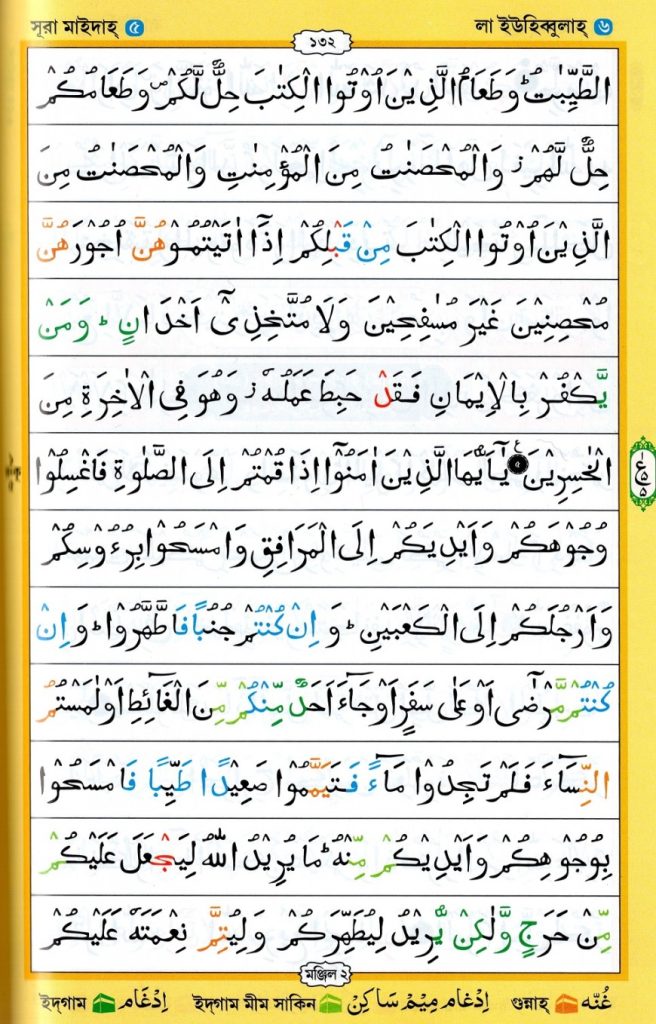 সূরা মাইদাহ্ ৫ লা ইউহিব্বুলাহ্ ৬
১৩২
الطَّيِّبٰتُ ؕ وَطَعَامُ الَّذِيْنَ اُوْتُوا الْكِتٰبَ حِلٌّ لَّكُمْ ۪ وَطَعَامُكُمْ
حِلٌّ لَّهُمْ ؗ وَالْمُحْصَنٰتُ مِنَ الْمُؤْمِنٰتِ وَالْمُحْصَنٰتُ مِنَ
الَّذِيْنَ اُوْتُوا الْكِتٰبَ مِنْ قَبْلِكُمْ اِذَاۤ اٰتَيْتُمُوْهُنَّ اُجُوْرَهُنَّ
مُحْصِنِيْنَ غَيْرَ مُسٰفِحِيْنَ وَلَا مُتَّخِذِيْۤ اَخْدَانٍ ؕ وَمَنْ
يَّكْفُرْ بِالْاِيْمَانِ فَقَدْ حَبِطَ عَمَلُهٗ ؗ وَهُوَ فِي الْاٰخِرَةِ مِنَ
الْخٰسِرِيْنَ ۵ ع يٰۤاَيُّهَا الَّذِيْنَ اٰمَنُوْۤا اِذَا قُمْتُمْ اِلَى الصَّلٰوةِ فَاغْسِلُوْا
وُجُوْهَكُمْ وَاَيْدِيَكُمْ اِلَى الْمَرَافِقِ وَامْسَحُوْا بِرُءُوْسِكُمْ
وَاَرْجُلَكُمْ اِلَى الْكَعْبَيْنِ ؕ وَاِنْ كُنْتُمْ جُنُبًا فَاطَّهَّرُوْا ؕ وَاِنْ
كُنْتُمْ مَّرْضٰۤى اَوْ عَلٰى سَفَرٍ اَوْ جَآءَ اَحَدٌ مِّنْكُمْ مِّنَ الْغَآئِطِ اَوْ لٰمَسْتُمُ
النِّسَآءَ فَلَمْ تَجِدُوْا مَآءً فَتَيَمَّمُوْا صَعِيْدًا طَيِّبًا فَامْسَحُوْا
بِوُجُوْهِكُمْ وَاَيْدِيْكُمْ مِّنْهُ ؕ مَا يُرِيْدُ اللّٰهُ لِيَجْعَلَ عَلَيْكُمْ
مِّنْ حَرَجٍ وَّلٰكِنْ يُّرِيْدُ لِيُطَهِّرَكُمْ وَلِيُتِمَّ نِعْمَتَهٗ عَلَيْكُمْ
মঞ্জিল ২
ইদ্গাম اِدْغَام ইদ্গাম মীম সাকিন اِدْغَام مِيْمْ سَاكِنْ গুন্নাহ্ غُنَّه